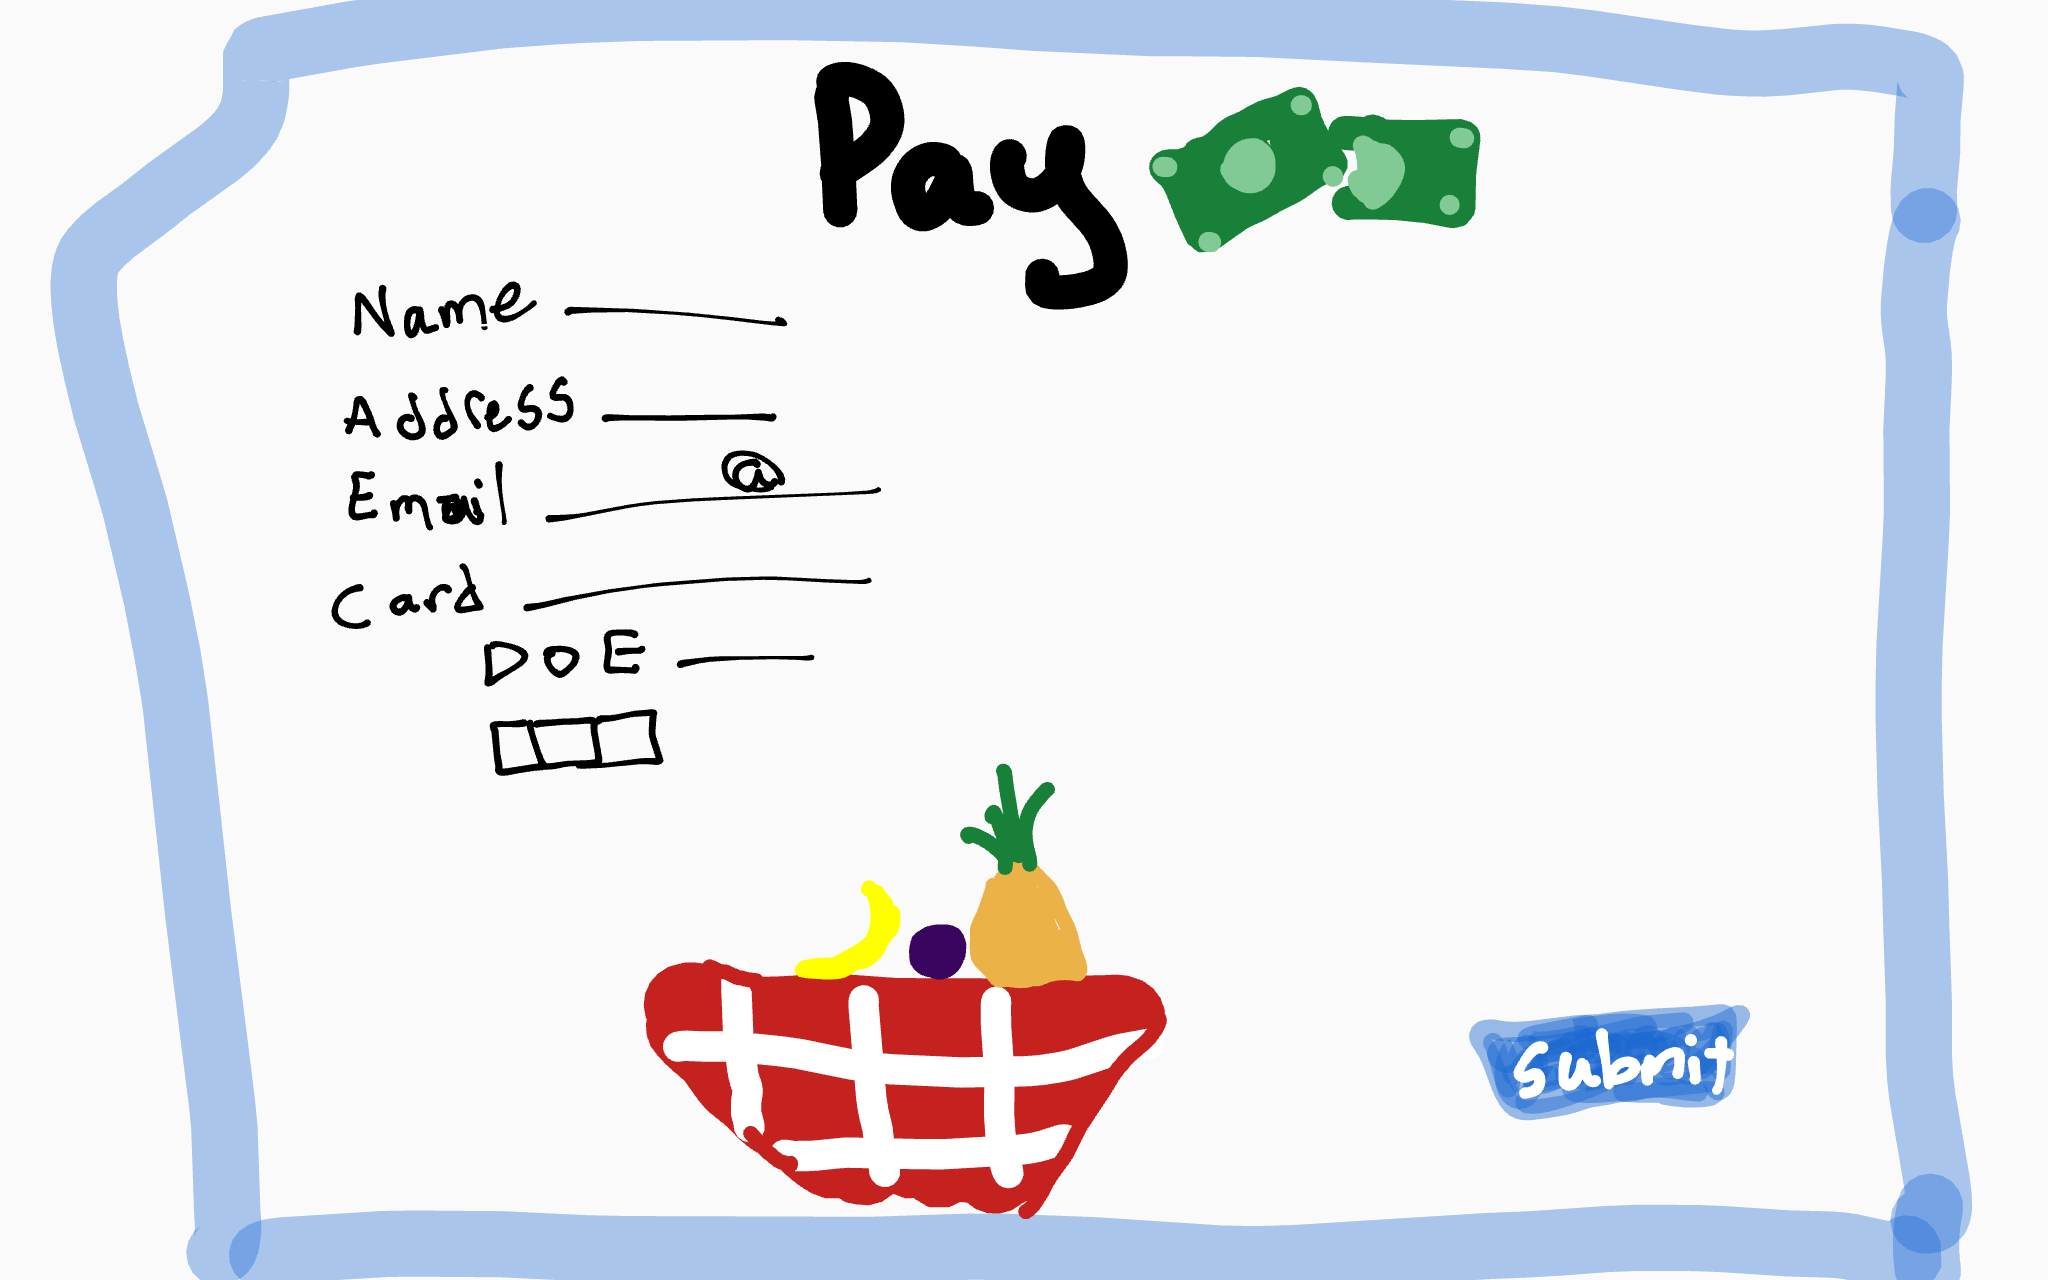 Pay
Name
Address
Email @
Card
DOE
submit